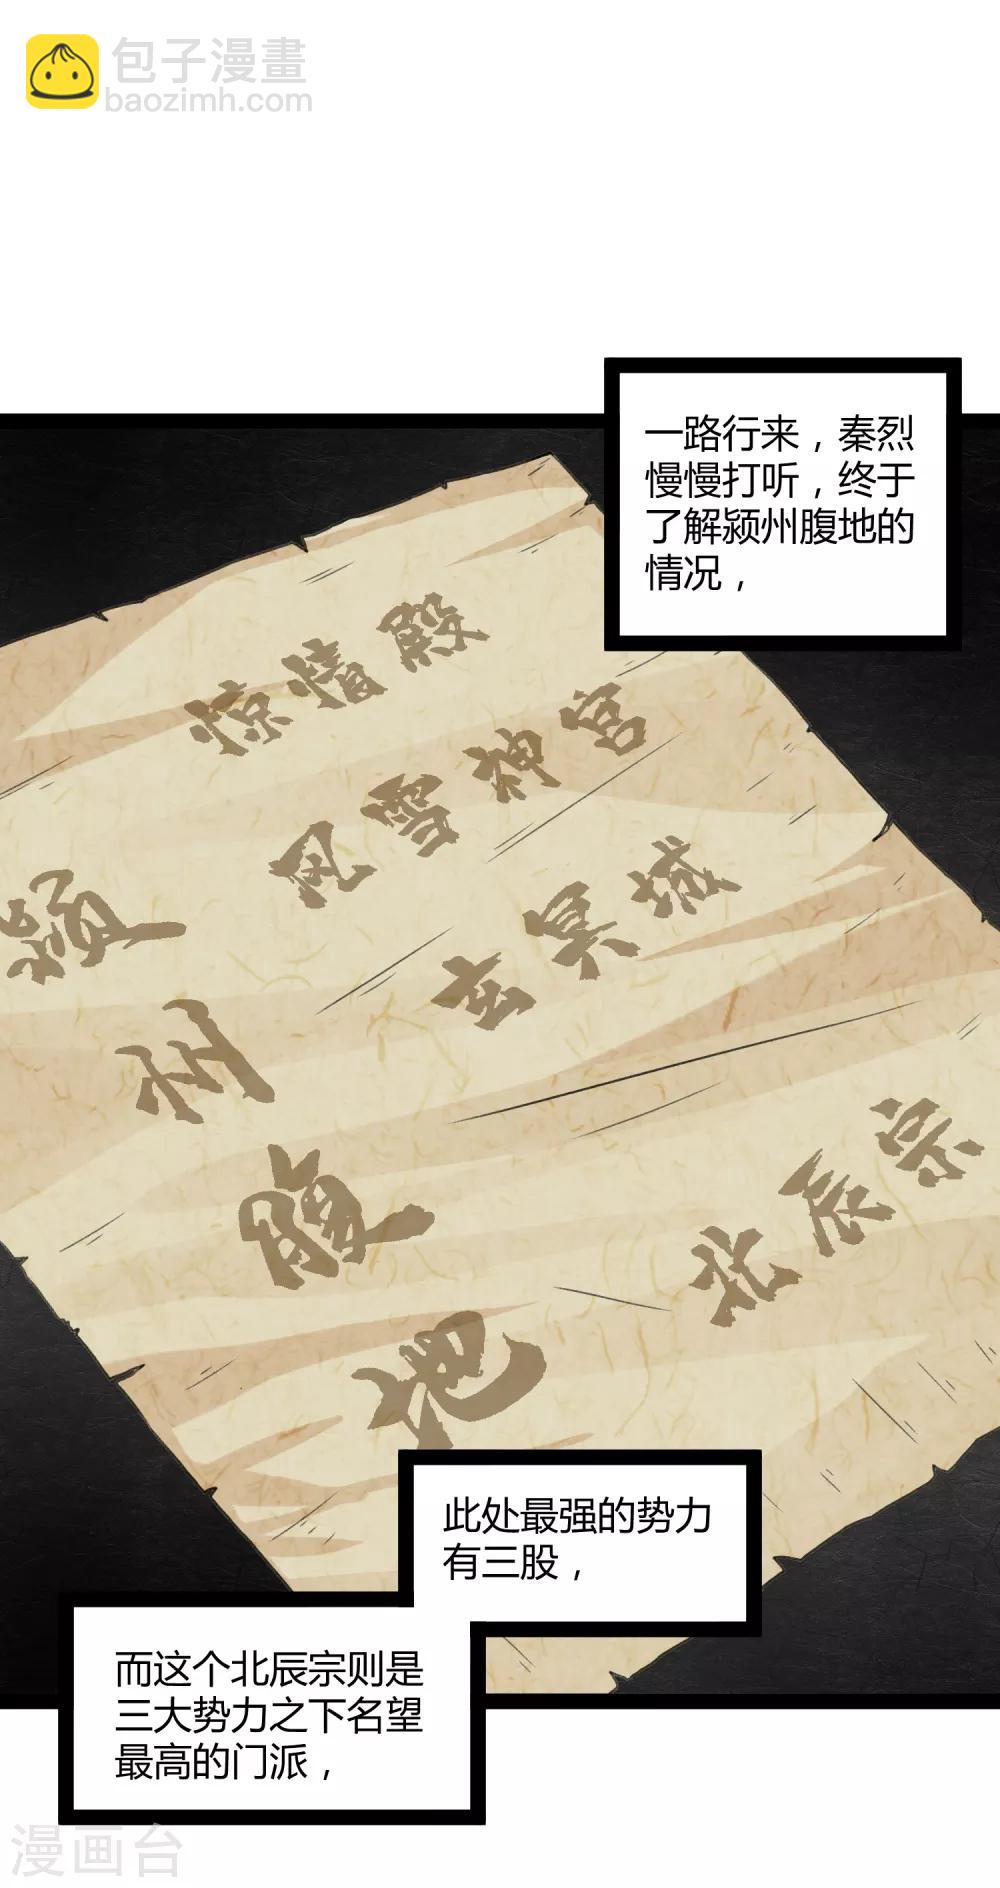 包子漫畫
baozimh.com
一路行来，秦烈
慢慢打听，终于
了解颍州腹地的
情况，
惊情殿
风雪神宫
玄冥城
颍州腹地
北辰宗
此处最强的势力
有三股，
而这个北辰宗则是
三大势力之下名望
最高的门派，
漫画台